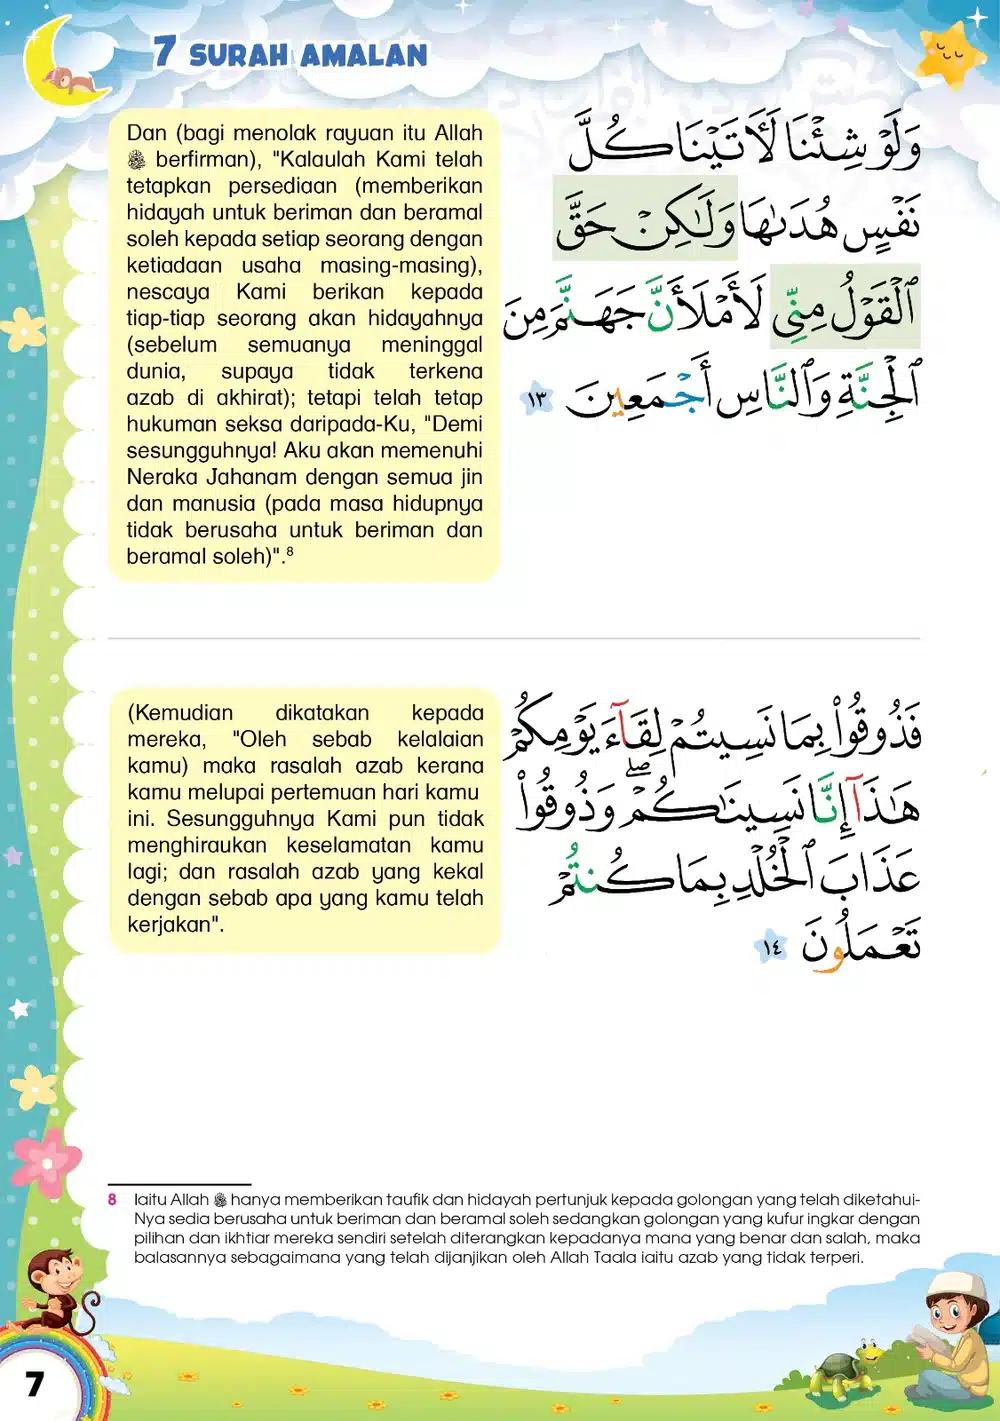 7 SURAH AMALAN
Dan (bagi menolak rayuan itu Allah
ﷻ berfirman), "Kalaulah Kami telah
tetapkan persediaan (memberikan
hidayah untuk beriman dan beramal
soleh kepada setiap seorang dengan
ketiadaan usaha masing-masing),
nescaya Kami berikan kepada
tiap-tiap seorang akan hidayahnya
(sebelum semuanya meninggal
dunia, supaya tidak terkena
azab di akhirat); tetapi telah tetap
hukuman seksa daripada-Ku, "Demi
sesungguhnya! Aku akan memenuhi
Neraka Jahanam dengan semua jin
dan manusia (pada masa hidupnya
tidak berusaha untuk beriman dan
beramal soleh)".8
وَلَوْ شِئْنَا لَأٓتَيْنَا كُلَّ
نَفْسٍ هُدَىٰهَا وَلَٰكِنْ حَقَّ
ٱلْقَوْلُ مِنِّي لَأَمْلَأَنَّ جَهَنَّمَ مِنَ
ٱلْجِنَّةِ وَٱلنَّاسِ أَجْمَعِينَ ١٣
(Kemudian dikatakan kepada
mereka, "Oleh sebab kelalaian
kamu) maka rasalah azab kerana
kamu melupai pertemuan hari kamu
ini. Sesungguhnya Kami pun tidak
menghiraukan keselamatan kamu
lagi; dan rasalah azab yang kekal
dengan sebab apa yang kamu telah
kerjakan".
فَذُوقُوا۟ بِمَا نَسِيتُمْ لِقَآءَ يَوْمِكُمْ
هَٰذَآ إِنَّا نَسِينَٰكُمْ ۖ وَذُوقُوا۟
عَذَابَ ٱلْخُلْدِ بِمَا كُنتُمْ
تَعْمَلُونَ ١٤
8 Iaitu Allah ﷻ hanya memberikan taufik dan hidayah pertunjuk kepada golongan yang telah diketahui-
Nya sedia berusaha untuk beriman dan beramal soleh sedangkan golongan yang kufur ingkar dengan
pilihan dan ikhtiar mereka sendiri setelah diterangkan kepadanya mana yang benar dan salah, maka
balasannya sebagaimana yang telah dijanjikan oleh Allah Taala iaitu azab yang tidak terperi.
7